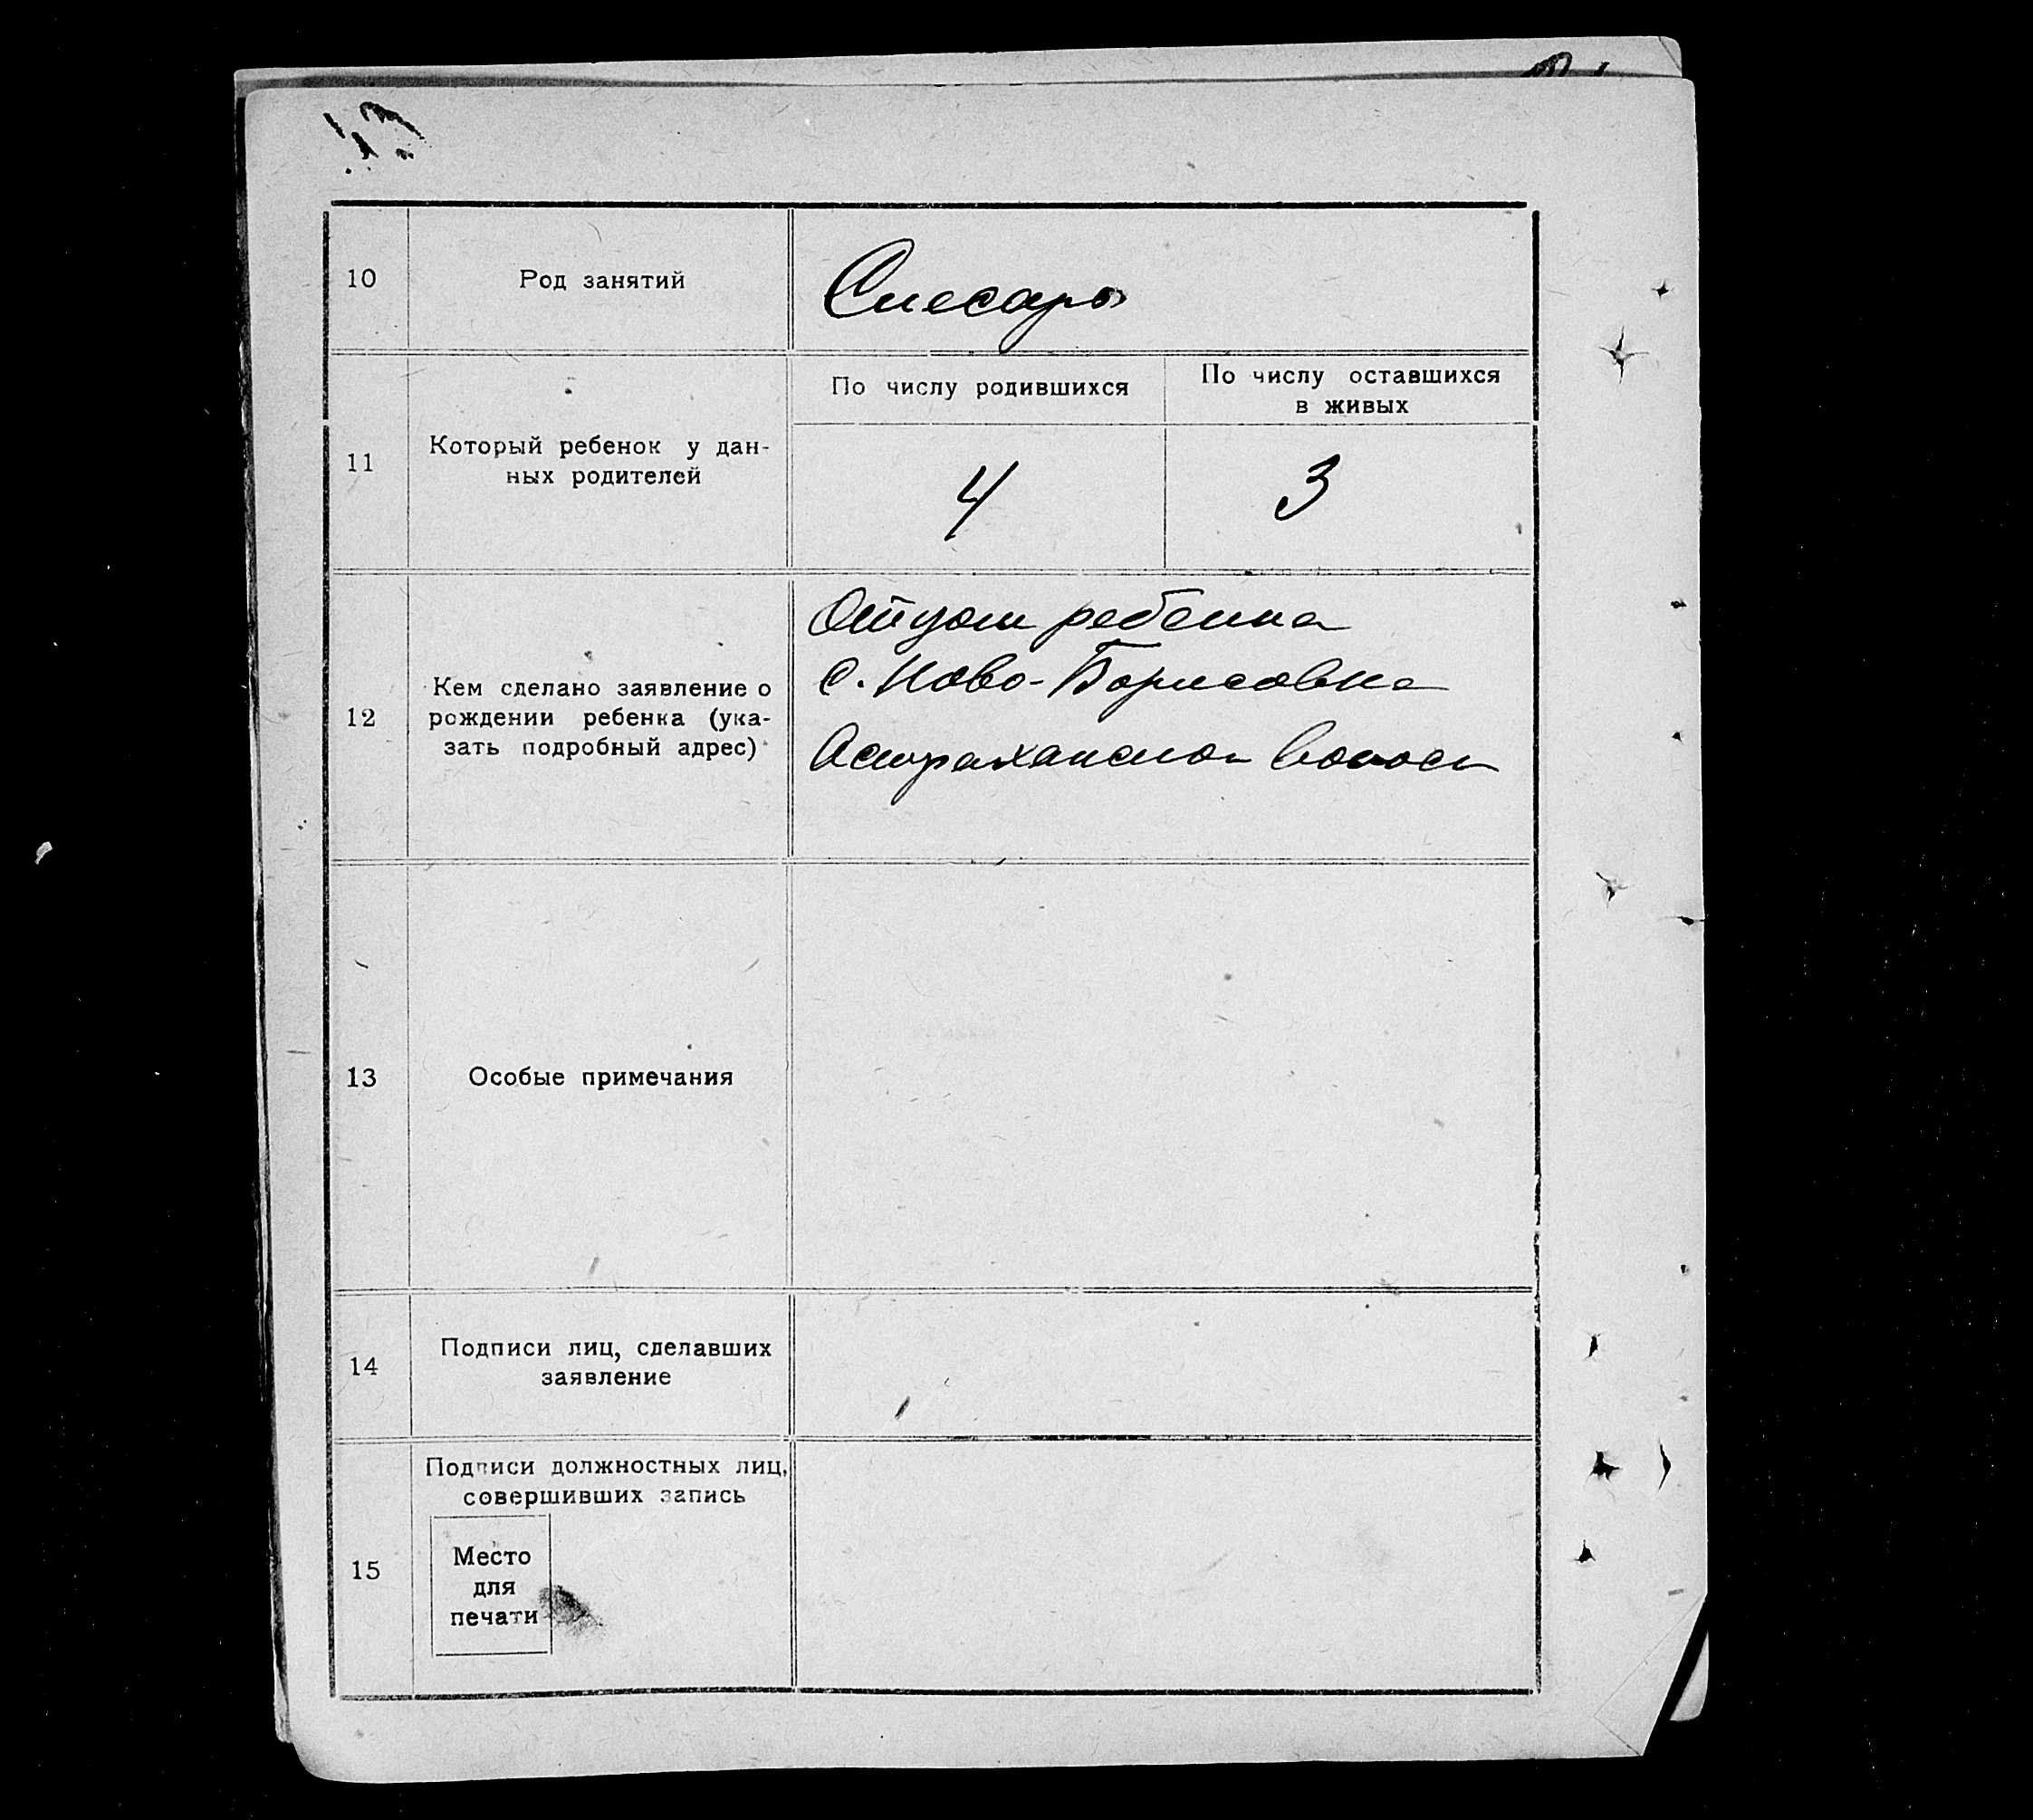 10 Род занятий Слесарь
По числу родившихся По числу оставшихся
в живых
11 Который ребенок у дан-
ных родителей
4 3
12 Кем сделано заявление о
рождении ребенка (ука-
зать подробный адрес)
Отцом ребенка
с. Ново-Борисовка
Астраханской волос
13 Особые примечания
14 Подписи лиц, сделавших
заявление
15 Подписи должностных лиц,
совершивших запись
Место
для
печати